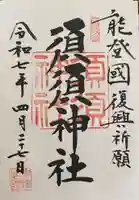 能登國復興祈願
須須神社
令和七年 四月二十七日